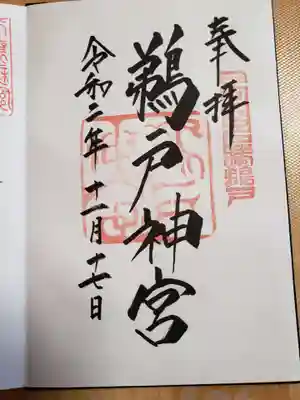 奉拝
鵜戸神宮
令和二年十一月十七日